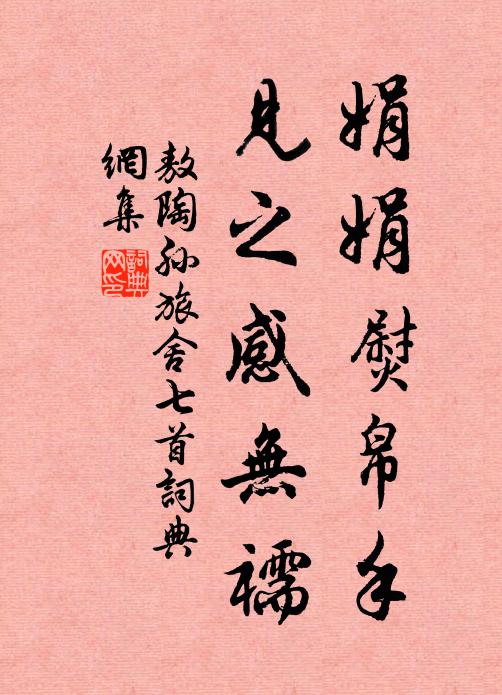 娟娟熨帛手
見之感無襦
敖陶孫旅舍七首詞典
網集
詞典
网印